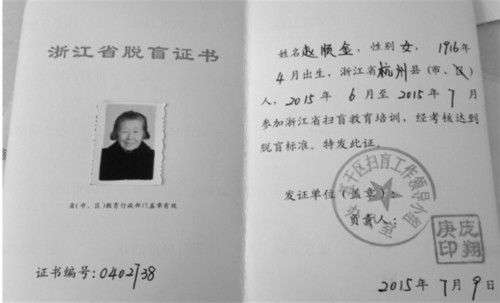 浙江省脱盲证书
县(市、区)教育行政部门盖章有效
证书编号:0402738
姓名赵顺金,性别女,1916年
4月出生,浙江省杭州县(市、区)
人,2015年6月至2015年7月
参加浙江省扫盲教育培训,经考核达到
脱盲标准。特发此证。
发证单位(盖章):
负责人:
干区扫盲工作领导小组
庞翔
庚印
2015年7月9日